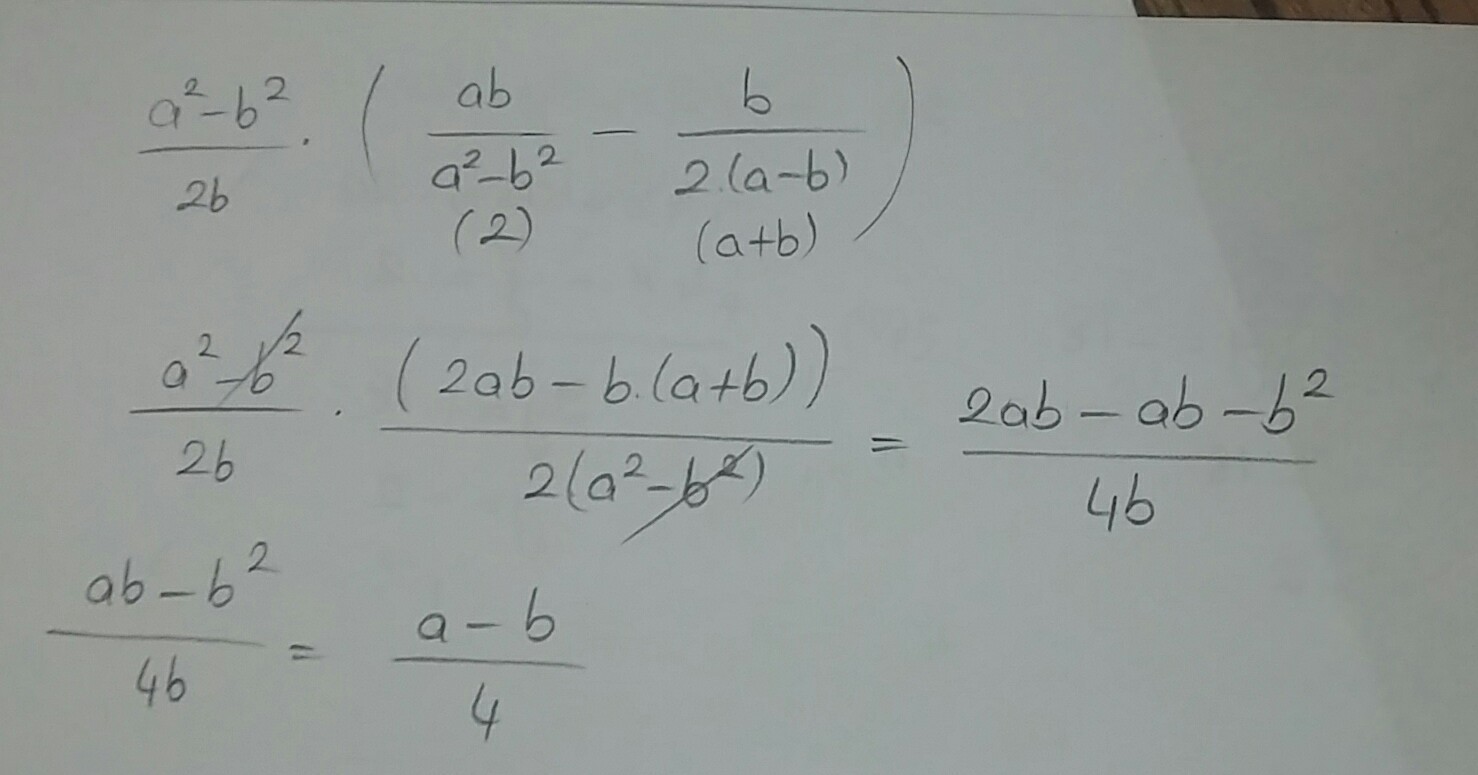 a²-b²/2b · ( ab/a²-b² (2) - b/2.(a-b) (a+b) )
a²-b²/2b · (2ab-b.(a+b))/2(a²-b²) = 2ab-ab-b²/4b
ab-b²/4b = a-b/4